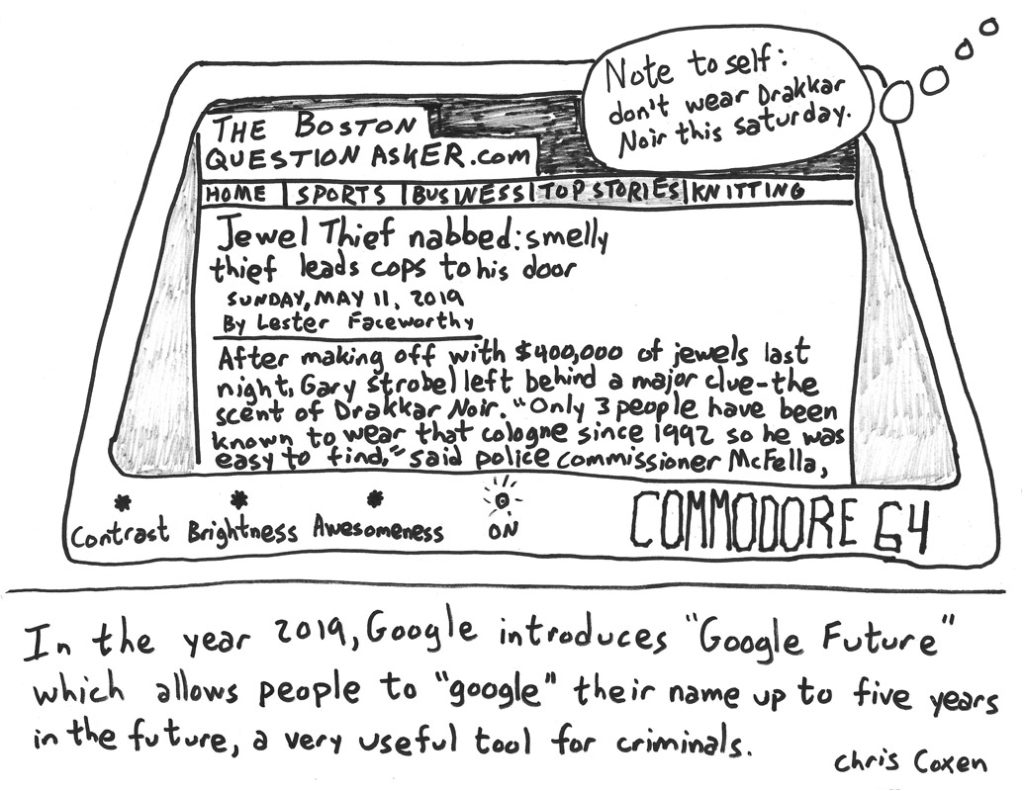 Note to self:
don't wear Drakkar
Noir this saturday.
THE BOSTON
QUESTION ASKER.com
HOME | SPORTS | BUSINESS | TOP STORIES | KNITTING
Jewel Thief nabbed: smelly
thief leads cops to his door
SUNDAY, MAY 11, 2019
By Lester Faceworthy
After making off with $400,000 of jewels last
night, Gary Strobel left behind a major clue-the
scent of Drakkar Noir. "Only 3 people have been
known to wear that cologne since 1992 so he was
easy to find," said police commissioner McFella,
Contrast Brightness Awesomeness ON
COMMODORE 64
In the year 2019, Google introduces "Google Future"
which allows people to "google" their name up to five years
in the future, a very useful tool for criminals.
Chris Coxen